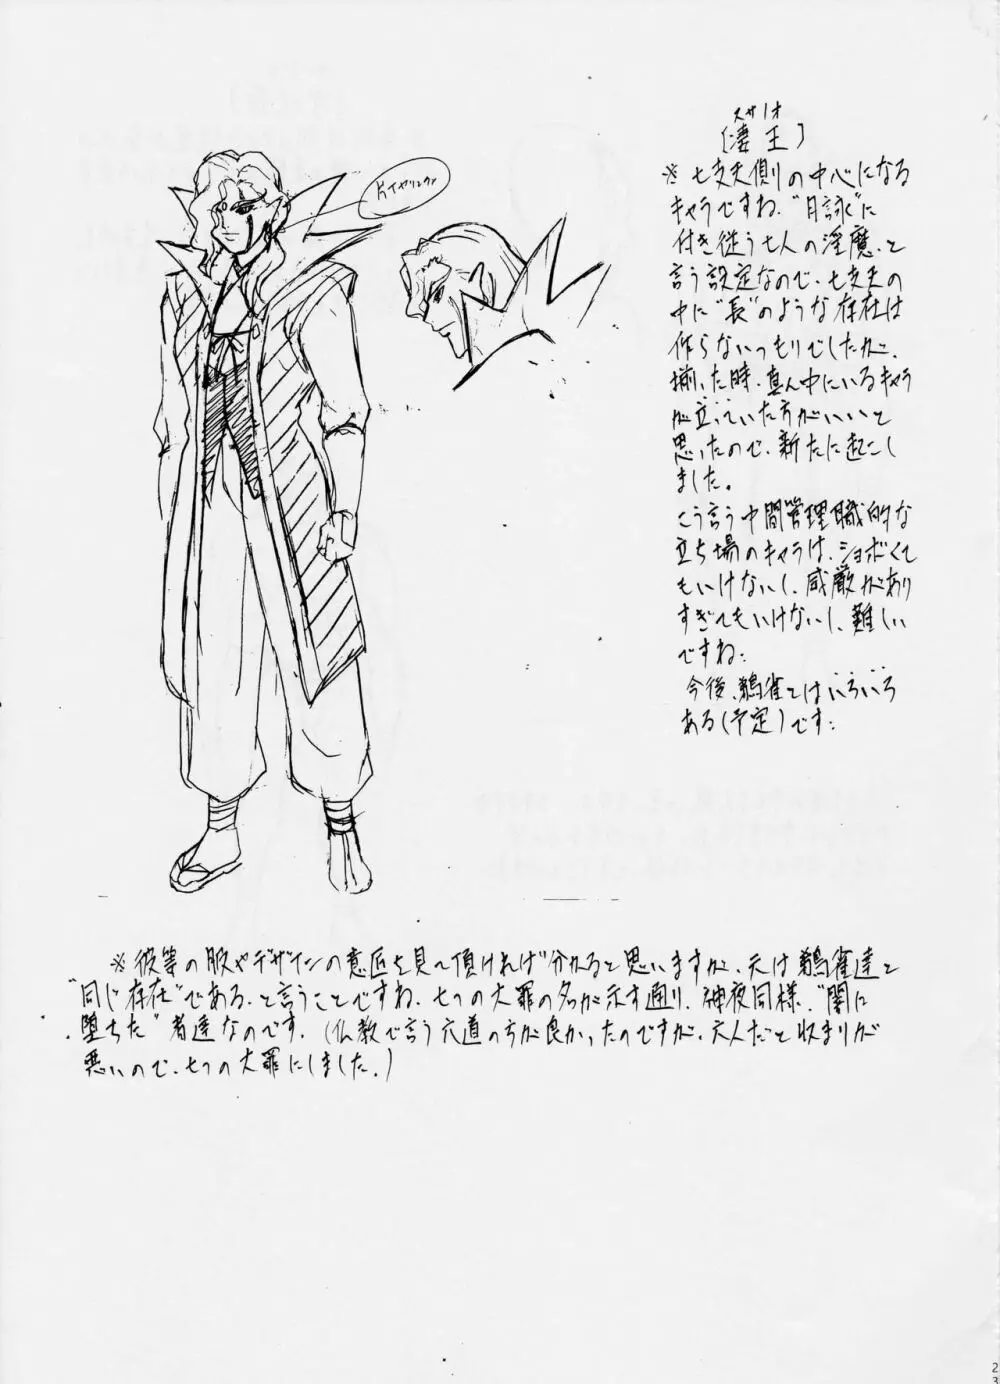 スサノオ
［凄王］
※七支夫側の中心になる
キャラですね。"月詠"に
付き従う七人の淫魔、と
言う設定なので、七支夫の
中に"長"のような存在は
作らないつもりでしたが、
揃った時、真ん中にいるキャラ
が立っていた方がいいと
思ったので、新たに起こし
ました。
こう言う中間管理職的な
立ち場のキャラは、ショボくて
もいけないし、威厳があり
すぎてもいけないし、難しい
ですね。
今後、鵺雀とはいろいろ
ある(予定)です。
片イヤリング
※彼等の服やデザインの意匠を見て頂ければ分かると思いますが、元は鵺雀達と
"同じ存在"である、と言うことですね。七つの大罪の名が示す通り、神夜同様、"闇に
堕ちた"者達なのです。(仏教で言う六道の方が良かったのですが、六人だと収まりが
悪いので、七つの大罪にしました。)
23